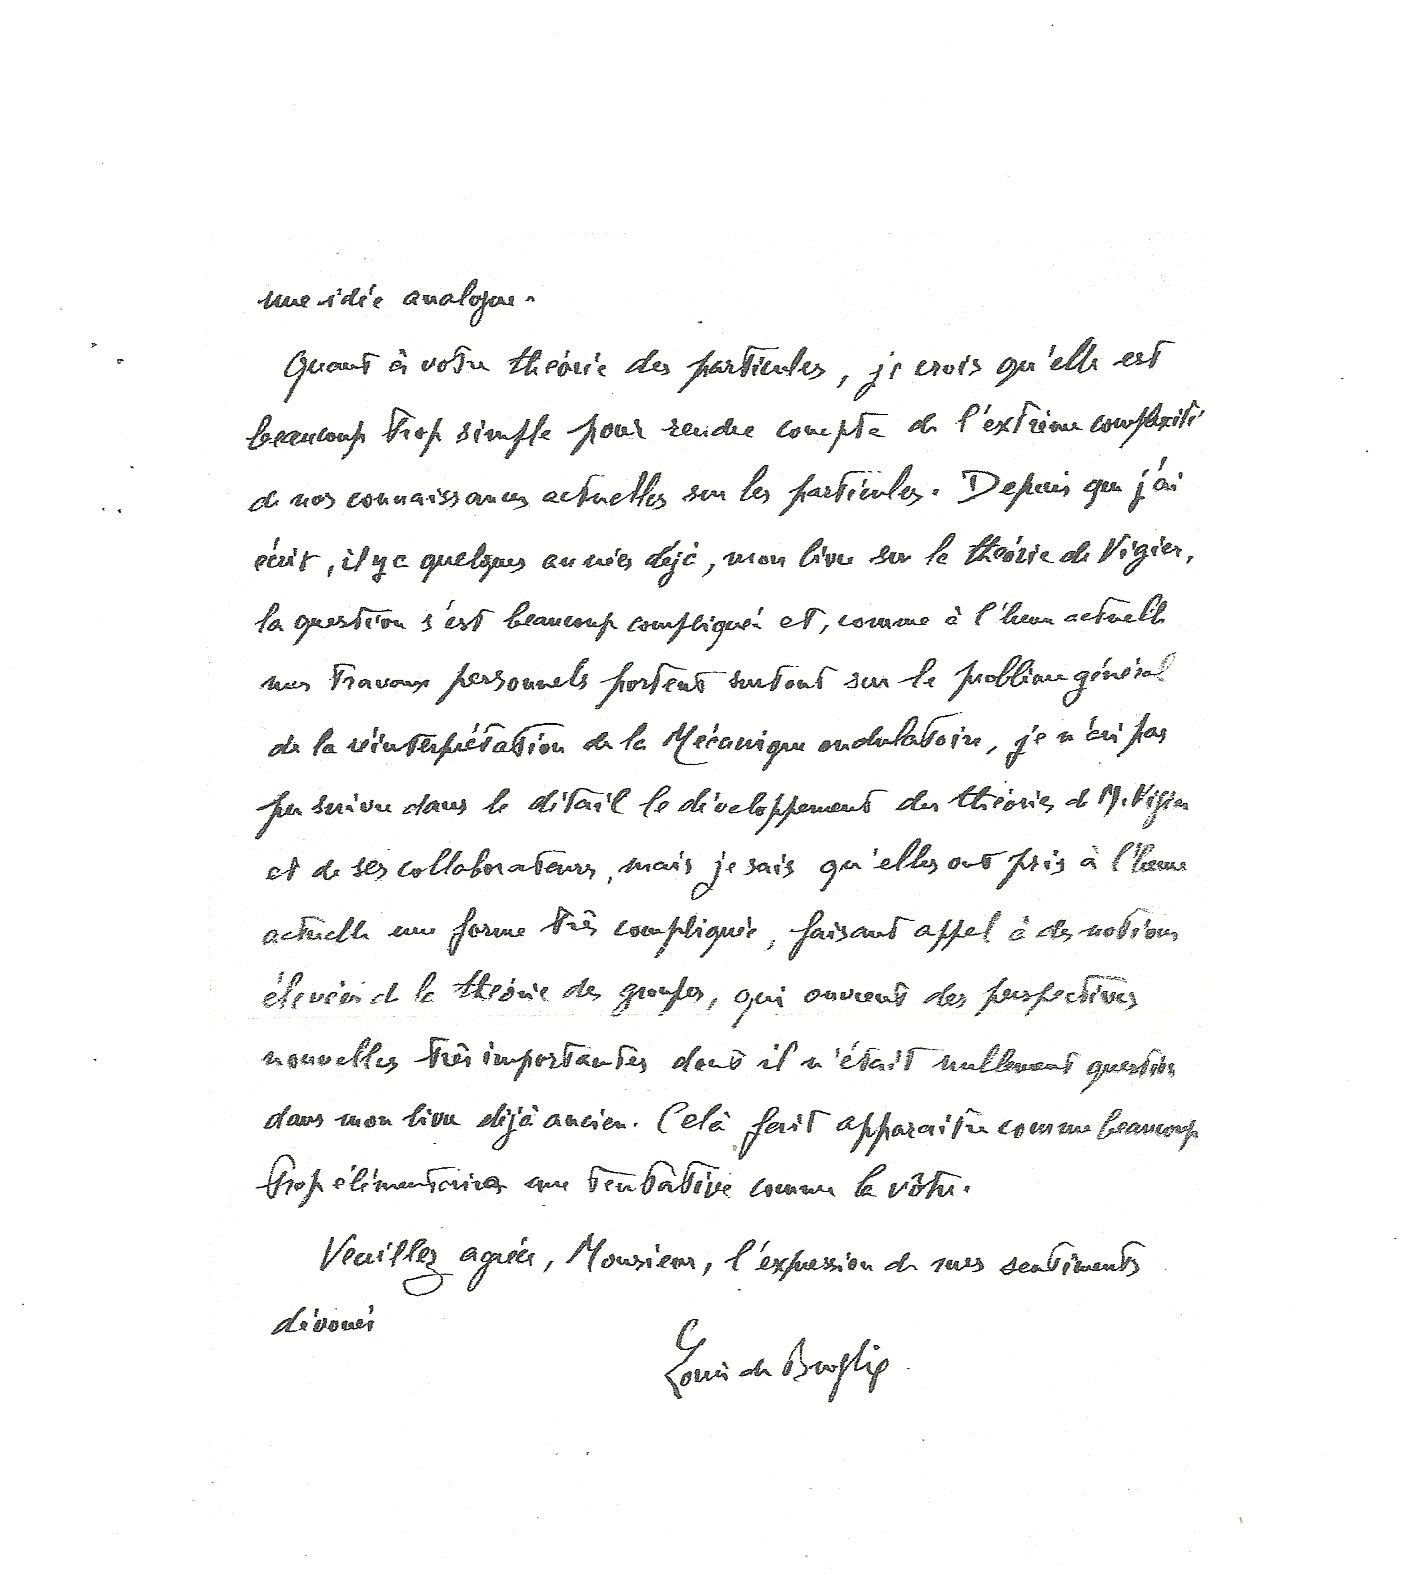 une idée analogue.
Quant à votre théorie des particules, je crois qu'elle est
beaucoup trop simple pour rendre compte de l'extrême complexité
de nos connaissances actuelles sur les particules. Depuis que j'ai
écrit, il y a quelques années déjà, mon livre sur la théorie de Vigier,
la question s'est beaucoup compliquée et, comme à l'heure actuelle
mes travaux personnels portent surtout sur le problème général
de la réinterprétation de la Mécanique ondulatoire, je n'ai pas
pu suivre dans le détail le développement des théories de M. Vigier
et de ses collaborateurs, mais je sais qu'elles ont pris à l'heure
actuelle une forme très compliquée, faisant appel à des notions
élevées de la théorie des groupes, qui ouvrent des perspectives
nouvelles très importantes dont il n'était nullement question
dans mon livre déjà ancien. Celà fait apparaitre comme beaucoup
trop élémentaire une tentative comme la vôtre.
Veuillez agréer, Monsieur, l'expression de mes sentiments
dévoués
Louis de Broglie